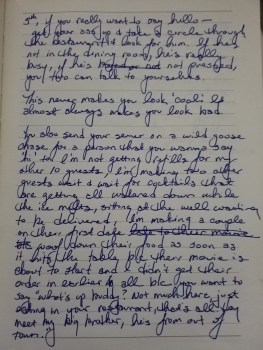 5th, if you really want to say hello -
get your ass up & take a circle through
the restaurant & look for him. If he's
not in the dining room, he's really
busy, if he's not pressed,
you two can talk to yourselves.
This never makes you look 'cool' &
almost always makes you look bad.
You also send your server on a wild goose
chase for a person that you wanna say
'hi' to. I'm not getting refills for my
other 10 guests, I'm making two other
guests wait & wait for cocktails that
are getting all watered down while
the ice melts, sitting at the well waiting
to be delivered, I'm making a couple
on their first date late to their movie
way down their food as soon as
it hits the table b/c their movie is
about to start and I didn't get their
order in earlier & all b/c you want to
say "what's up buddy? Not much here, just
in your restaurant, that's all. Hey
meet my big brother, he's from out of
town."